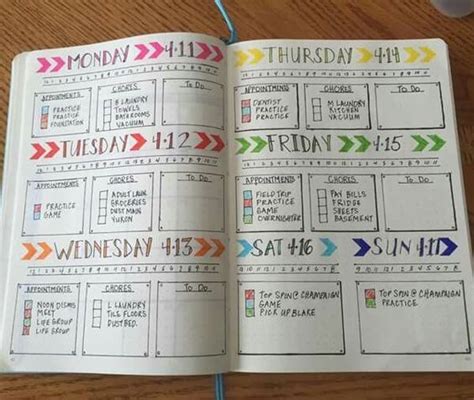 MONDAY 4·11
APPOINTMENTS
PRACTICE
PRACTICE
FOUNDATION
CHORES
B LAUNDRY
TOWELS
BATHROOMS
VACUUM
TO DO
TUESDAY 4·12
APPOINTMENTS
PRACTICE
GAME
CHORES
ADULT LAUN.
GROCERIES
DUST MAIN
YUKON
TO DO
WEDNESDAY 4·13
APPOINTMENTS
NOON DISMIS
MELT
LIFE GROUP
LIFE GROUP
CHORES
L LAUNDRY
TILE FLOORS
DUST BED.
TO DO
THURSDAY 4·14
APPOINTMENTS
DENTIST
PRACTICE
PRACTICE
CHORES
M LAUNDRY
KITCHEN
VACUUM
TO DO
FRIDAY 4·15
APPOINTMENTS
FIELD TRIP
PRACTICE
GAME
OVERNIGHTER
CHORES
PAY BILLS
FRIDGE
SHEETS
BASEMENT
TO DO
SAT 4·16
TOP SPIN @ CHAMPAIGN
GAME
PICK UP BLAKE
SUN 4·17
TOP SPIN @ CHAMPAIGN
PRACTICE